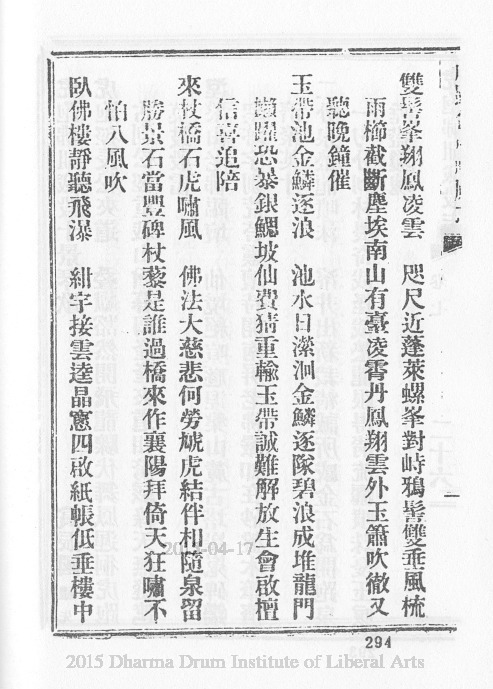 雙髻峯翔鳳凌雲　咫尺近蓬萊螺峯對峙鴉髻雙垂風梳
雨櫛截斷塵埃南山有臺凌霄丹鳳翔雲外玉簫吹徹又
聽晚鐘催
玉帶池金鱗逐浪　池水日瀠洄金鱗逐隊碧浪成堆龍門
嬾躍恐暴銀鰓坡仙費猜重輸玉帶誠難解放生會啟檀
信喜追陪
來杖橋石虎嘯風　佛法大慈悲何勞虓虎結伴相隨泉留
勝景石當豐碑杖藜是誰過橋來作襄陽拜倚天狂嘯不
怕八風吹
臥佛樓靜聽飛瀑　紺宇接雲逵晶窻四啟紙帳低垂樓中
一
294
2015-04-17
2015 Dharma Drum Institute of Liberal Arts